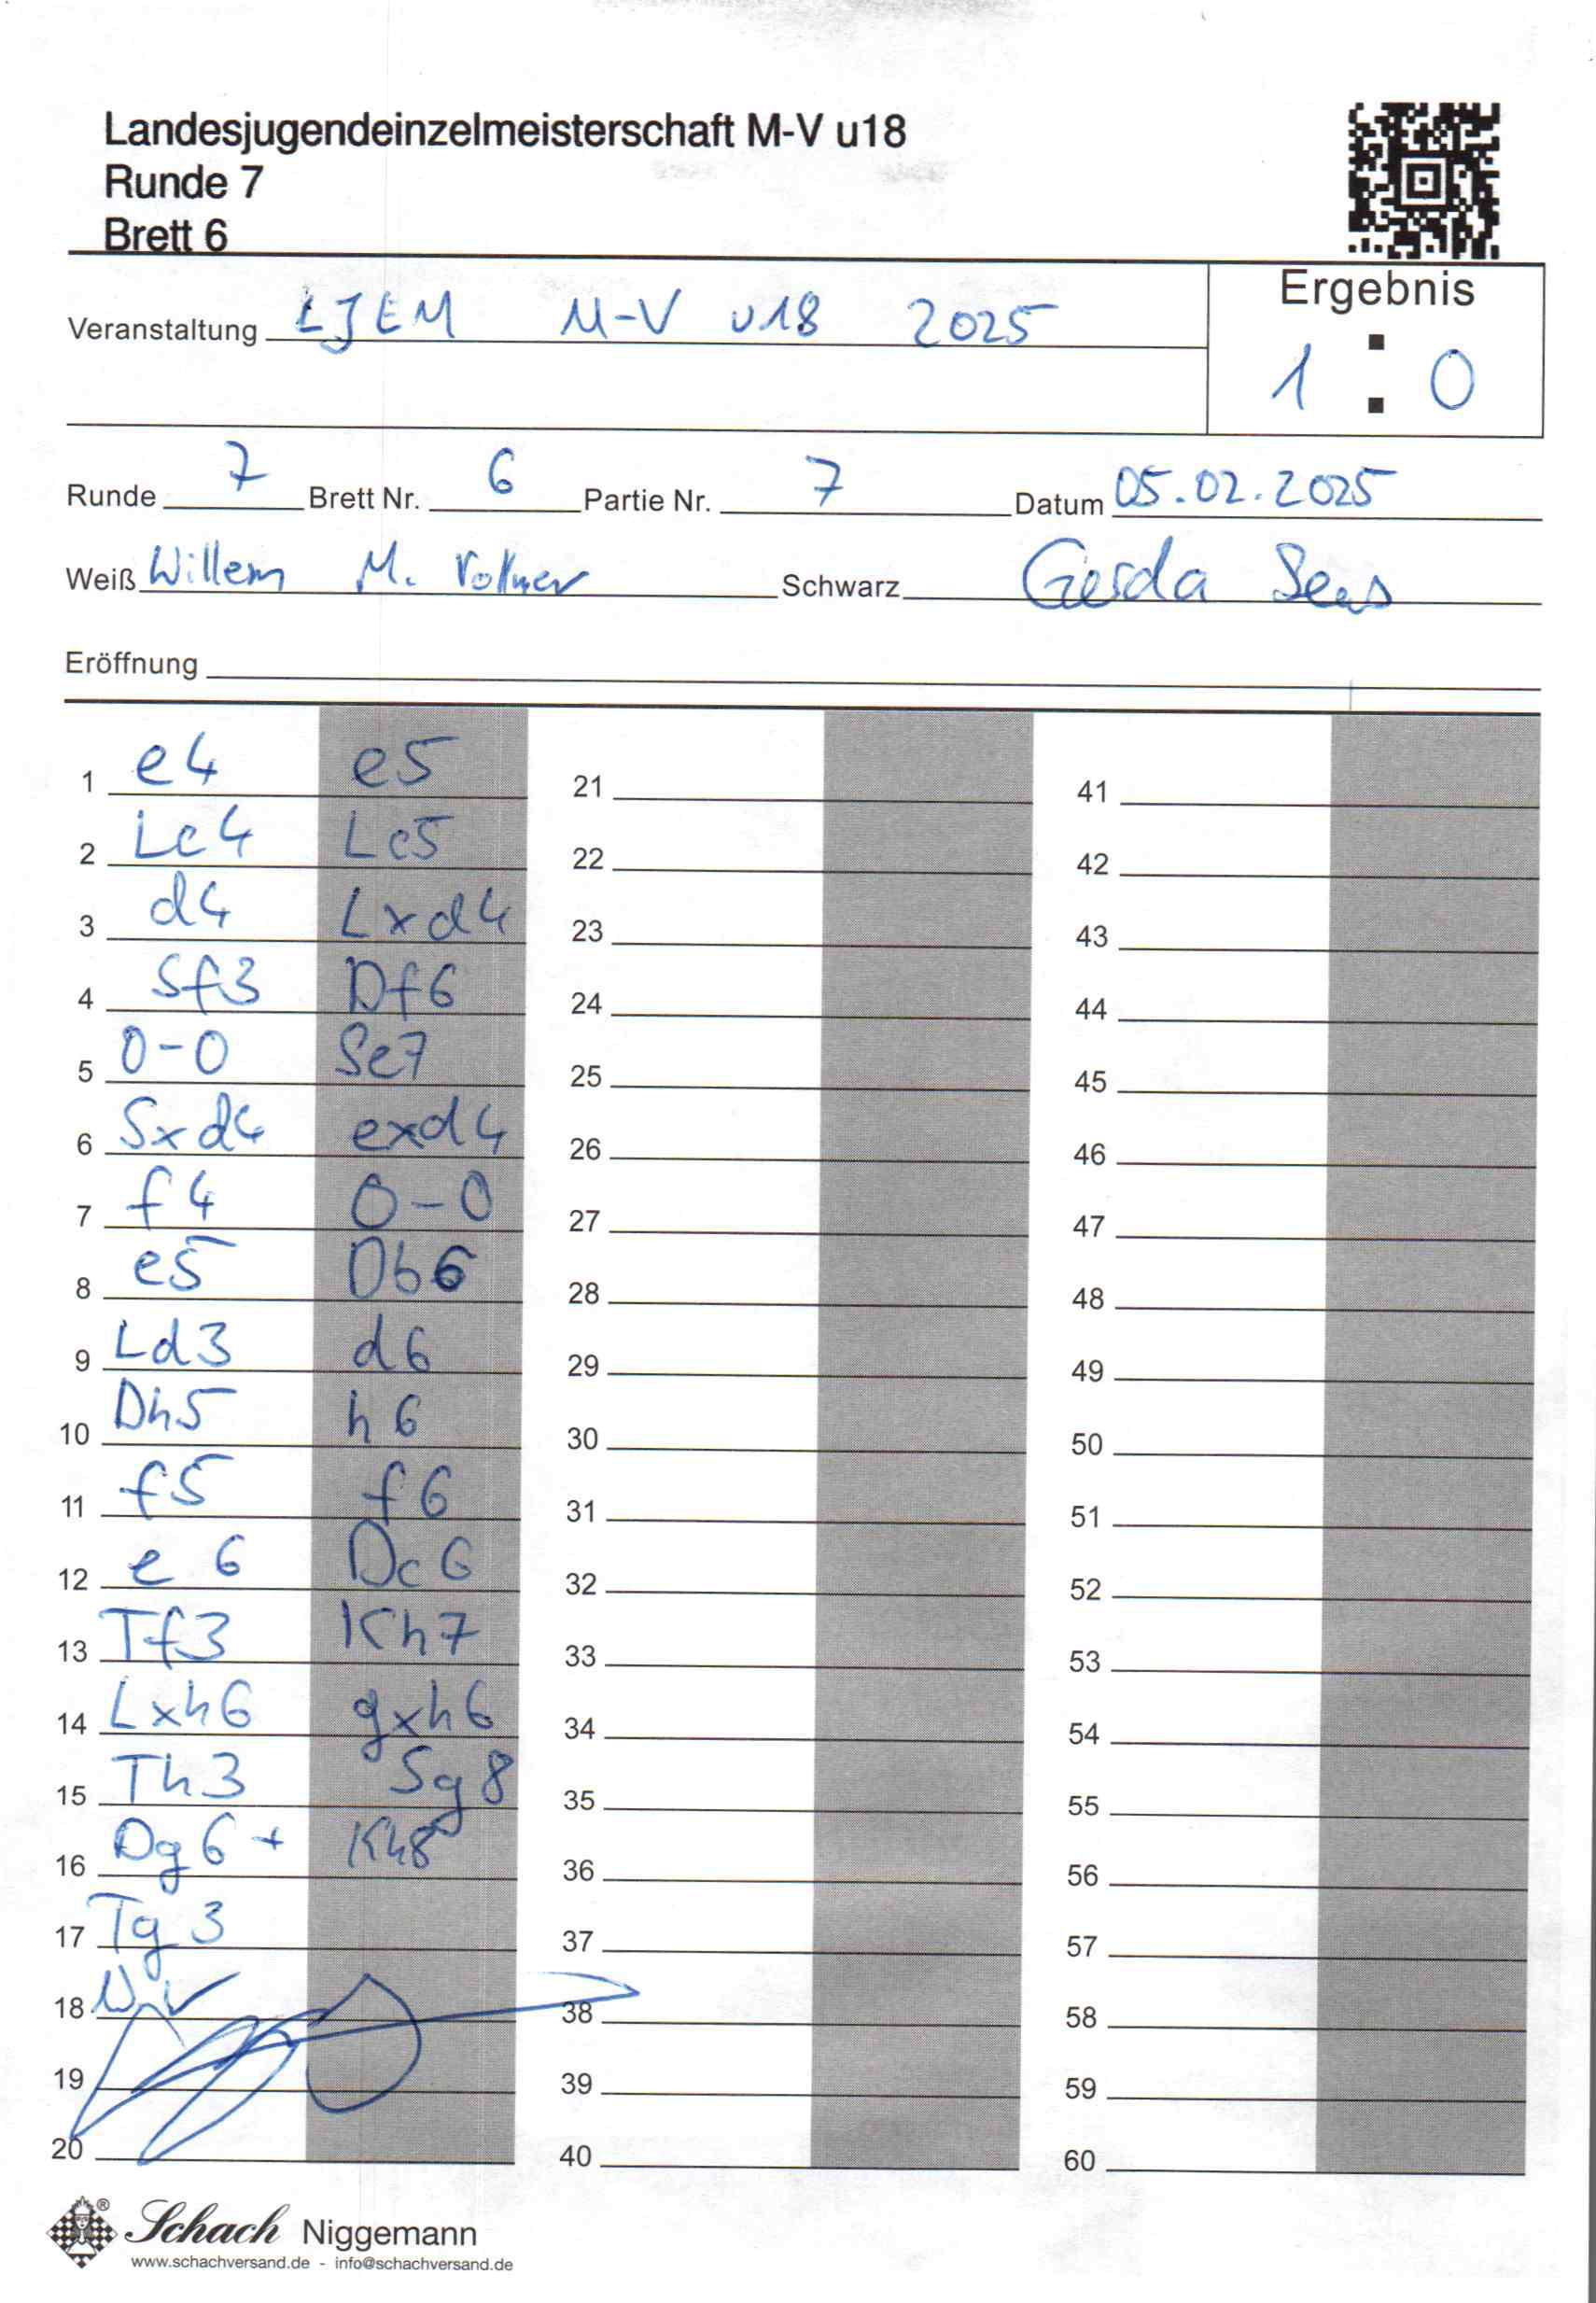 Landesjugendeinzelmeisterschaft M-V u18
Runde 7
Brett 6
Ergebnis
1 : 0
Veranstaltung LJEM M-V u18 2025
Runde 7 Brett Nr. 6 Partie Nr. 7 Datum 05.02.2025
Weiß Willem M. Vollmer Schwarz Gerda Sens
Eröffnung
1 e4 e5 21 41
2 Lc4 Lc5 22 42
3 d4 Lxd4 23 43
4 Sf3 Df6 24 44
5 0-0 Se7 25 45
6 Sxd4 exd4 26 46
7 f4 0-0 27 47
8 e5 Db6 28 48
9 Ld3 d6 29 49
10 Dh5 h6 30 50
11 f5 f6 31 51
12 e6 Dc6 32 52
13 Tf3 Kh7 33 53
14 Lxh6 gxh6 34 54
15 Th3 Sg8 35 55
16 Dg6+ Kh8 36 56
17 Tg3 37 57
18 38 58
19 39 59
20 40 60
Schach Niggemann
www.schachversand.de - info@schachversand.de